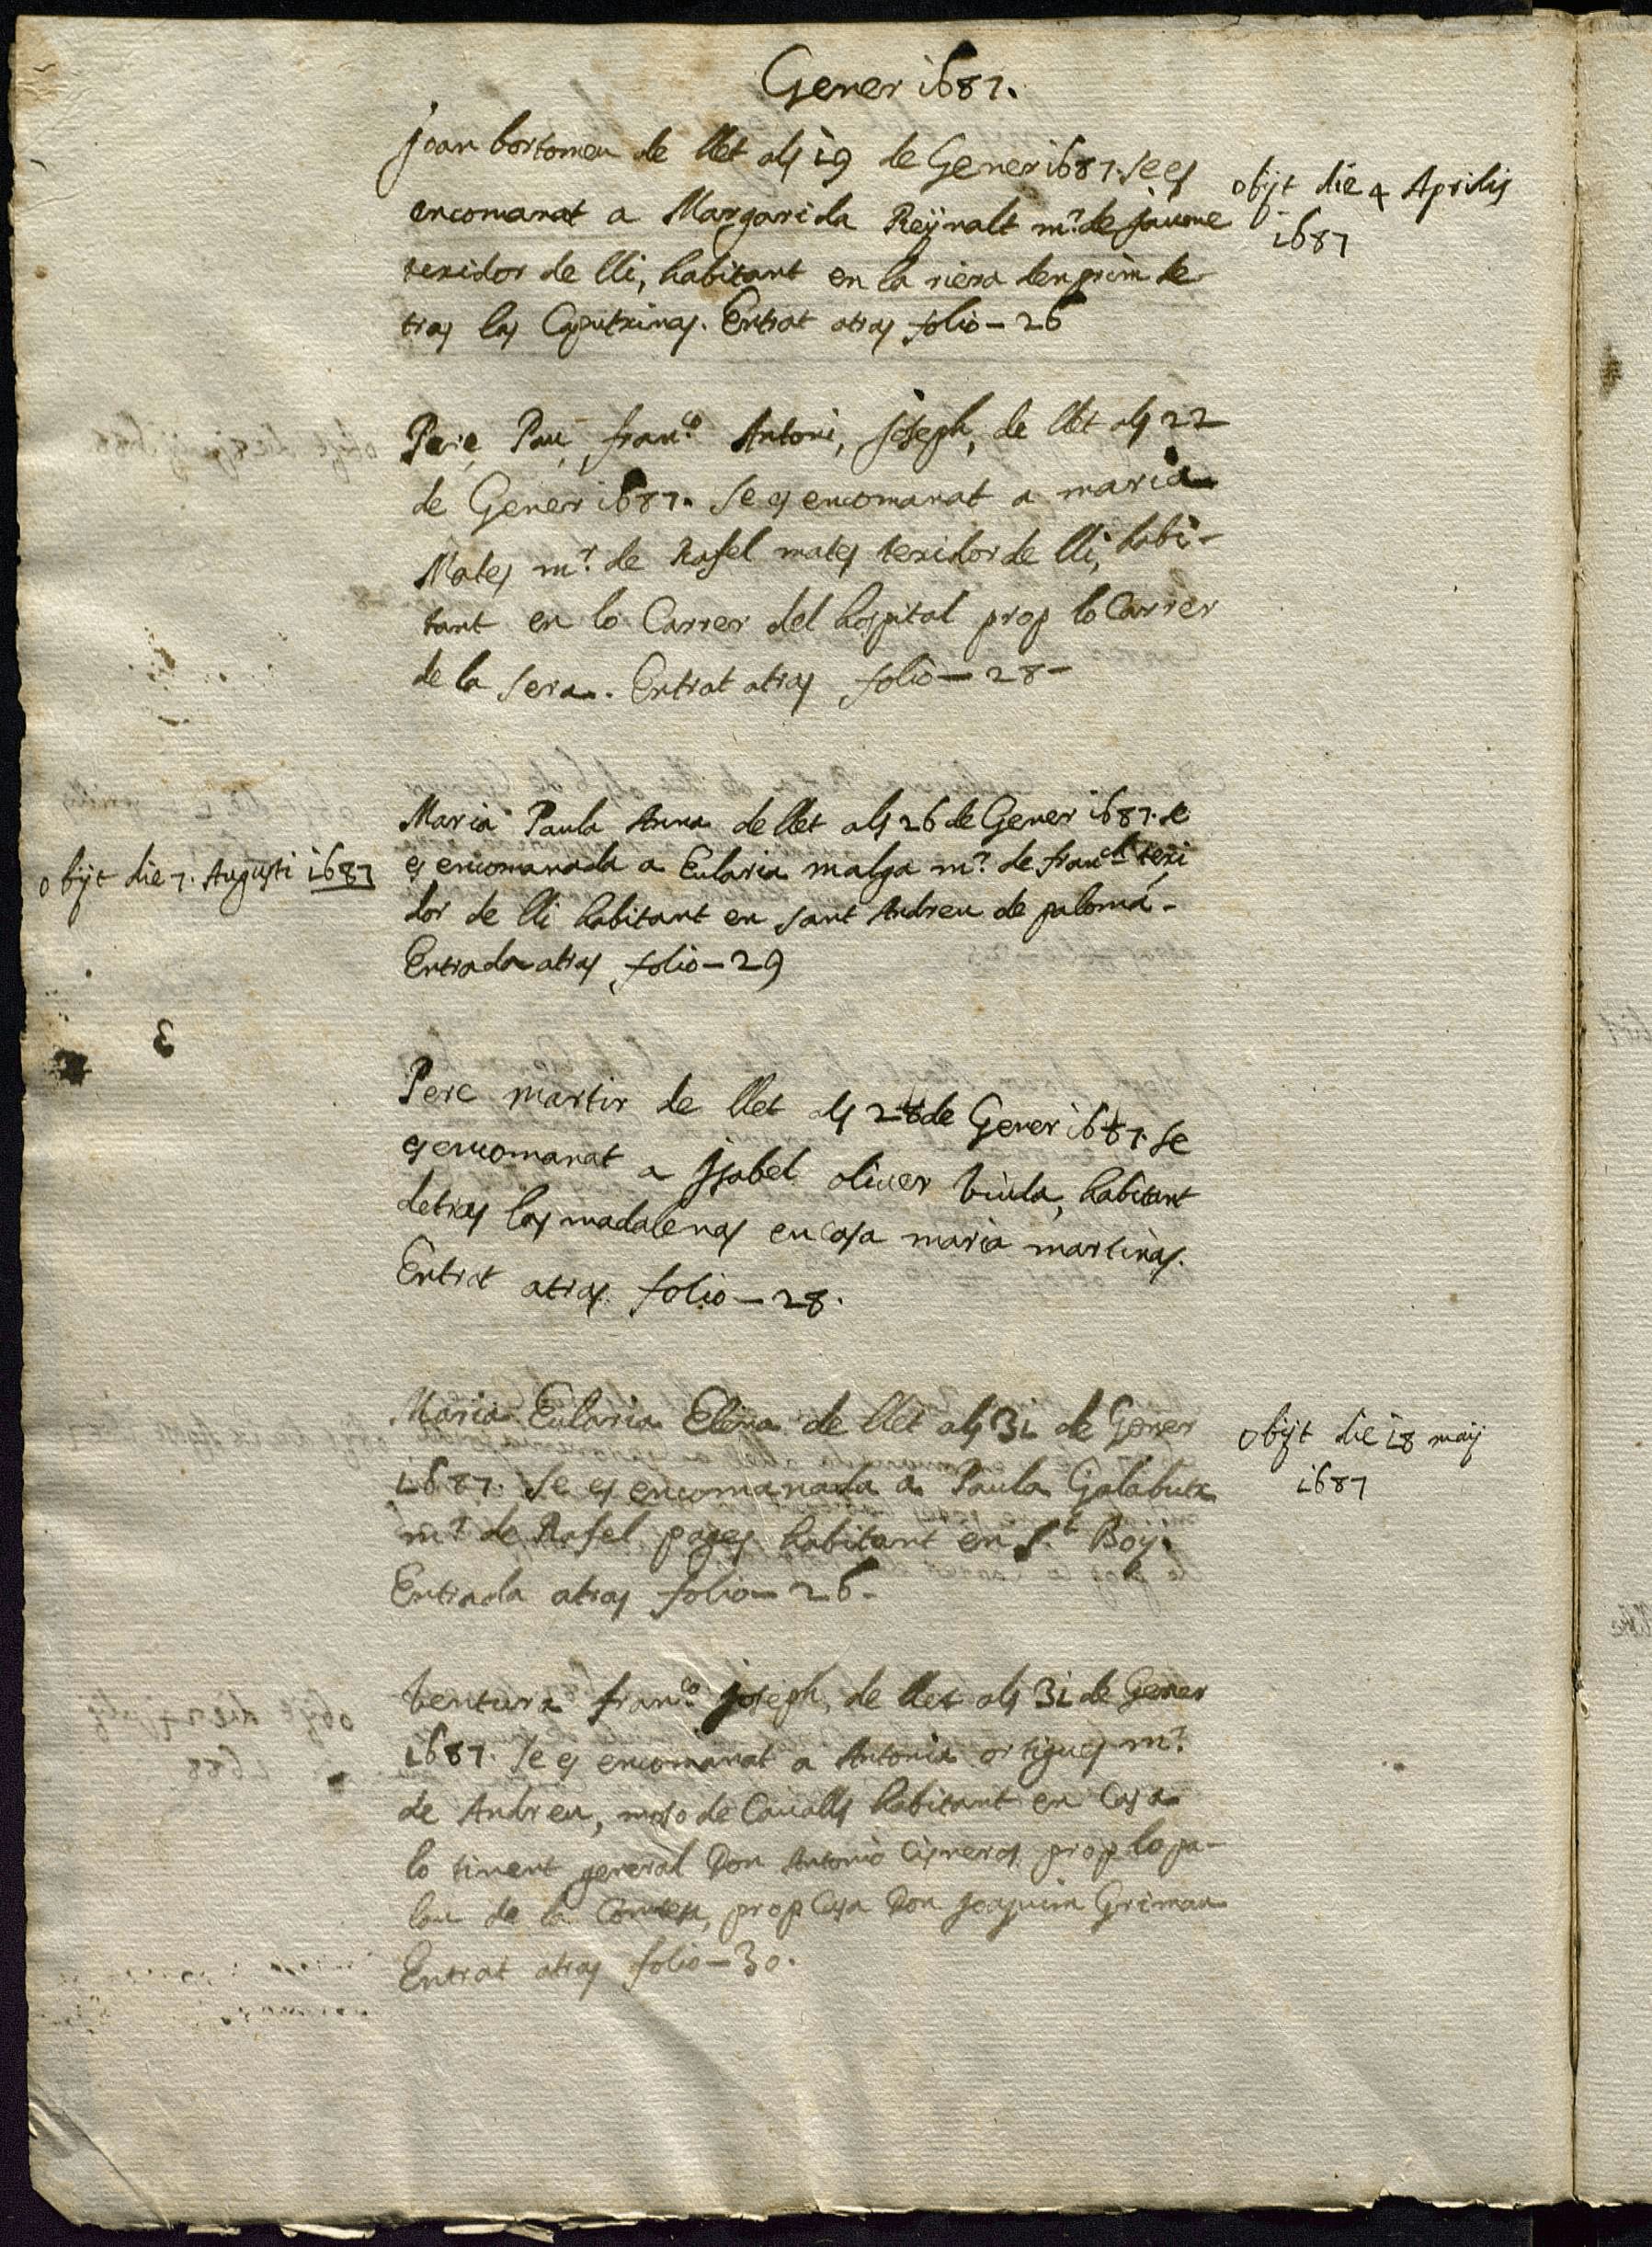 Gener i687.
joan bortomeu de llet als i9 de Gener i687. se es
encomanat a Margarida Reÿnalt mr. de jaume
texidor de lli, habitant en la riera den prim de
tras las Caputxinas. Entrat atras folio - 26
obijt die 4 Aprilis
i687
Pere, Pau, franco. Antoni, joseph, de llet als 22
de Gener i687. se es encomanat a maria
Mates mr. de Rafel mates texidor de lli, habi-
tant en lo Carrer del hospital prop lo Carrer
de la sera. Entrat atras folio - 28 -
Maria Paula Anna de llet als 26 de Gener i687. se
es encomanada a Eularia malga mr. de franch. texi
dor de lli habitant en sant Andreu de palomá -
Entrada atras folio - 29
obijt die 7. Augusti i687
Pere martir de llet als 28 de Gener i687. se
es encomanat a jsabel oliuer viuda, habitant
detras las madalenas en casa maria martinas.
Entrat atras folio - 28.
Maria Eularia Elena de llet als 3i de Gener
i687. se es encomanada a Paula Galabuta
mr. de Rafel pages habitant en St. Boÿ.
Entrada atras folio - 26 -
obijt die i8 maij
i687
Ventura franco. joseph, de llet als 3i de Gener
i687. se es encomanat a Antonia ortigues mr.
de Andreu, moso de Cavalls habitant en Casa
lo tinent general Don Antonio Cisneros prop lo pa-
lau de la Comtesa, prop Casa Don joaquim Grimau
Entrat atras folio - 30.